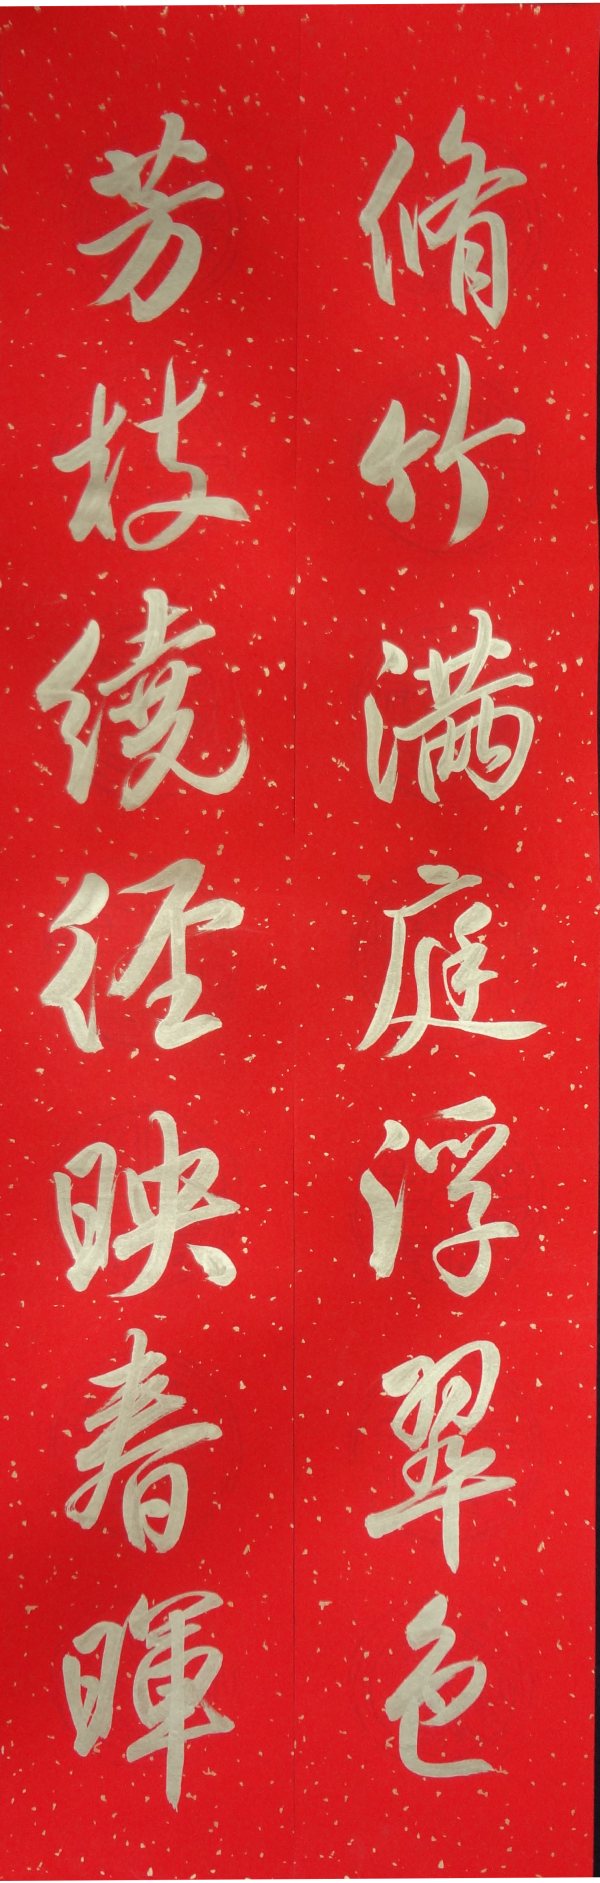 脩竹满庭浮翠色
芳枝繞径映春暉